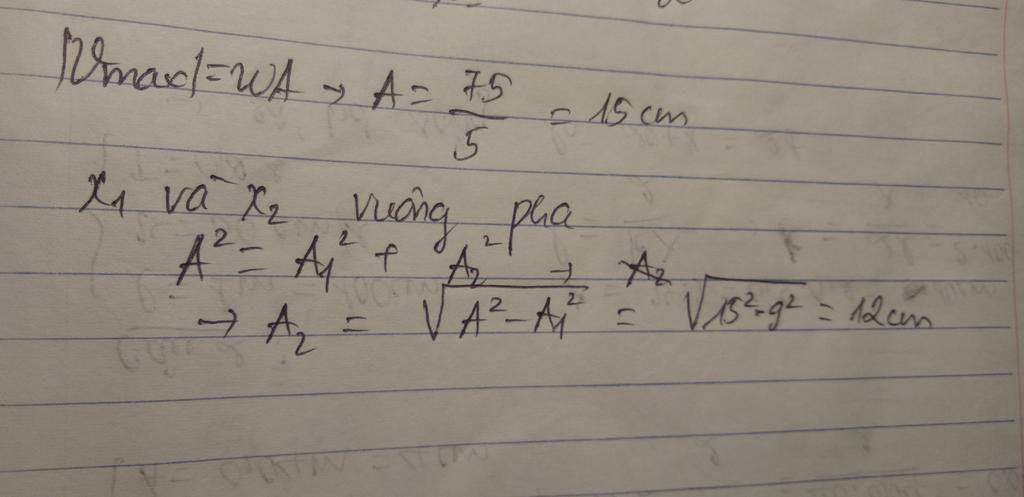 |Vmax| = ωA → A = 75/5 = 15 cm
x₁ và x₂ vuông pha
A² = A₁² + A₂² →
→ A₂ = √(A² - A₁²) = √(15² - 9²) = 12 cm